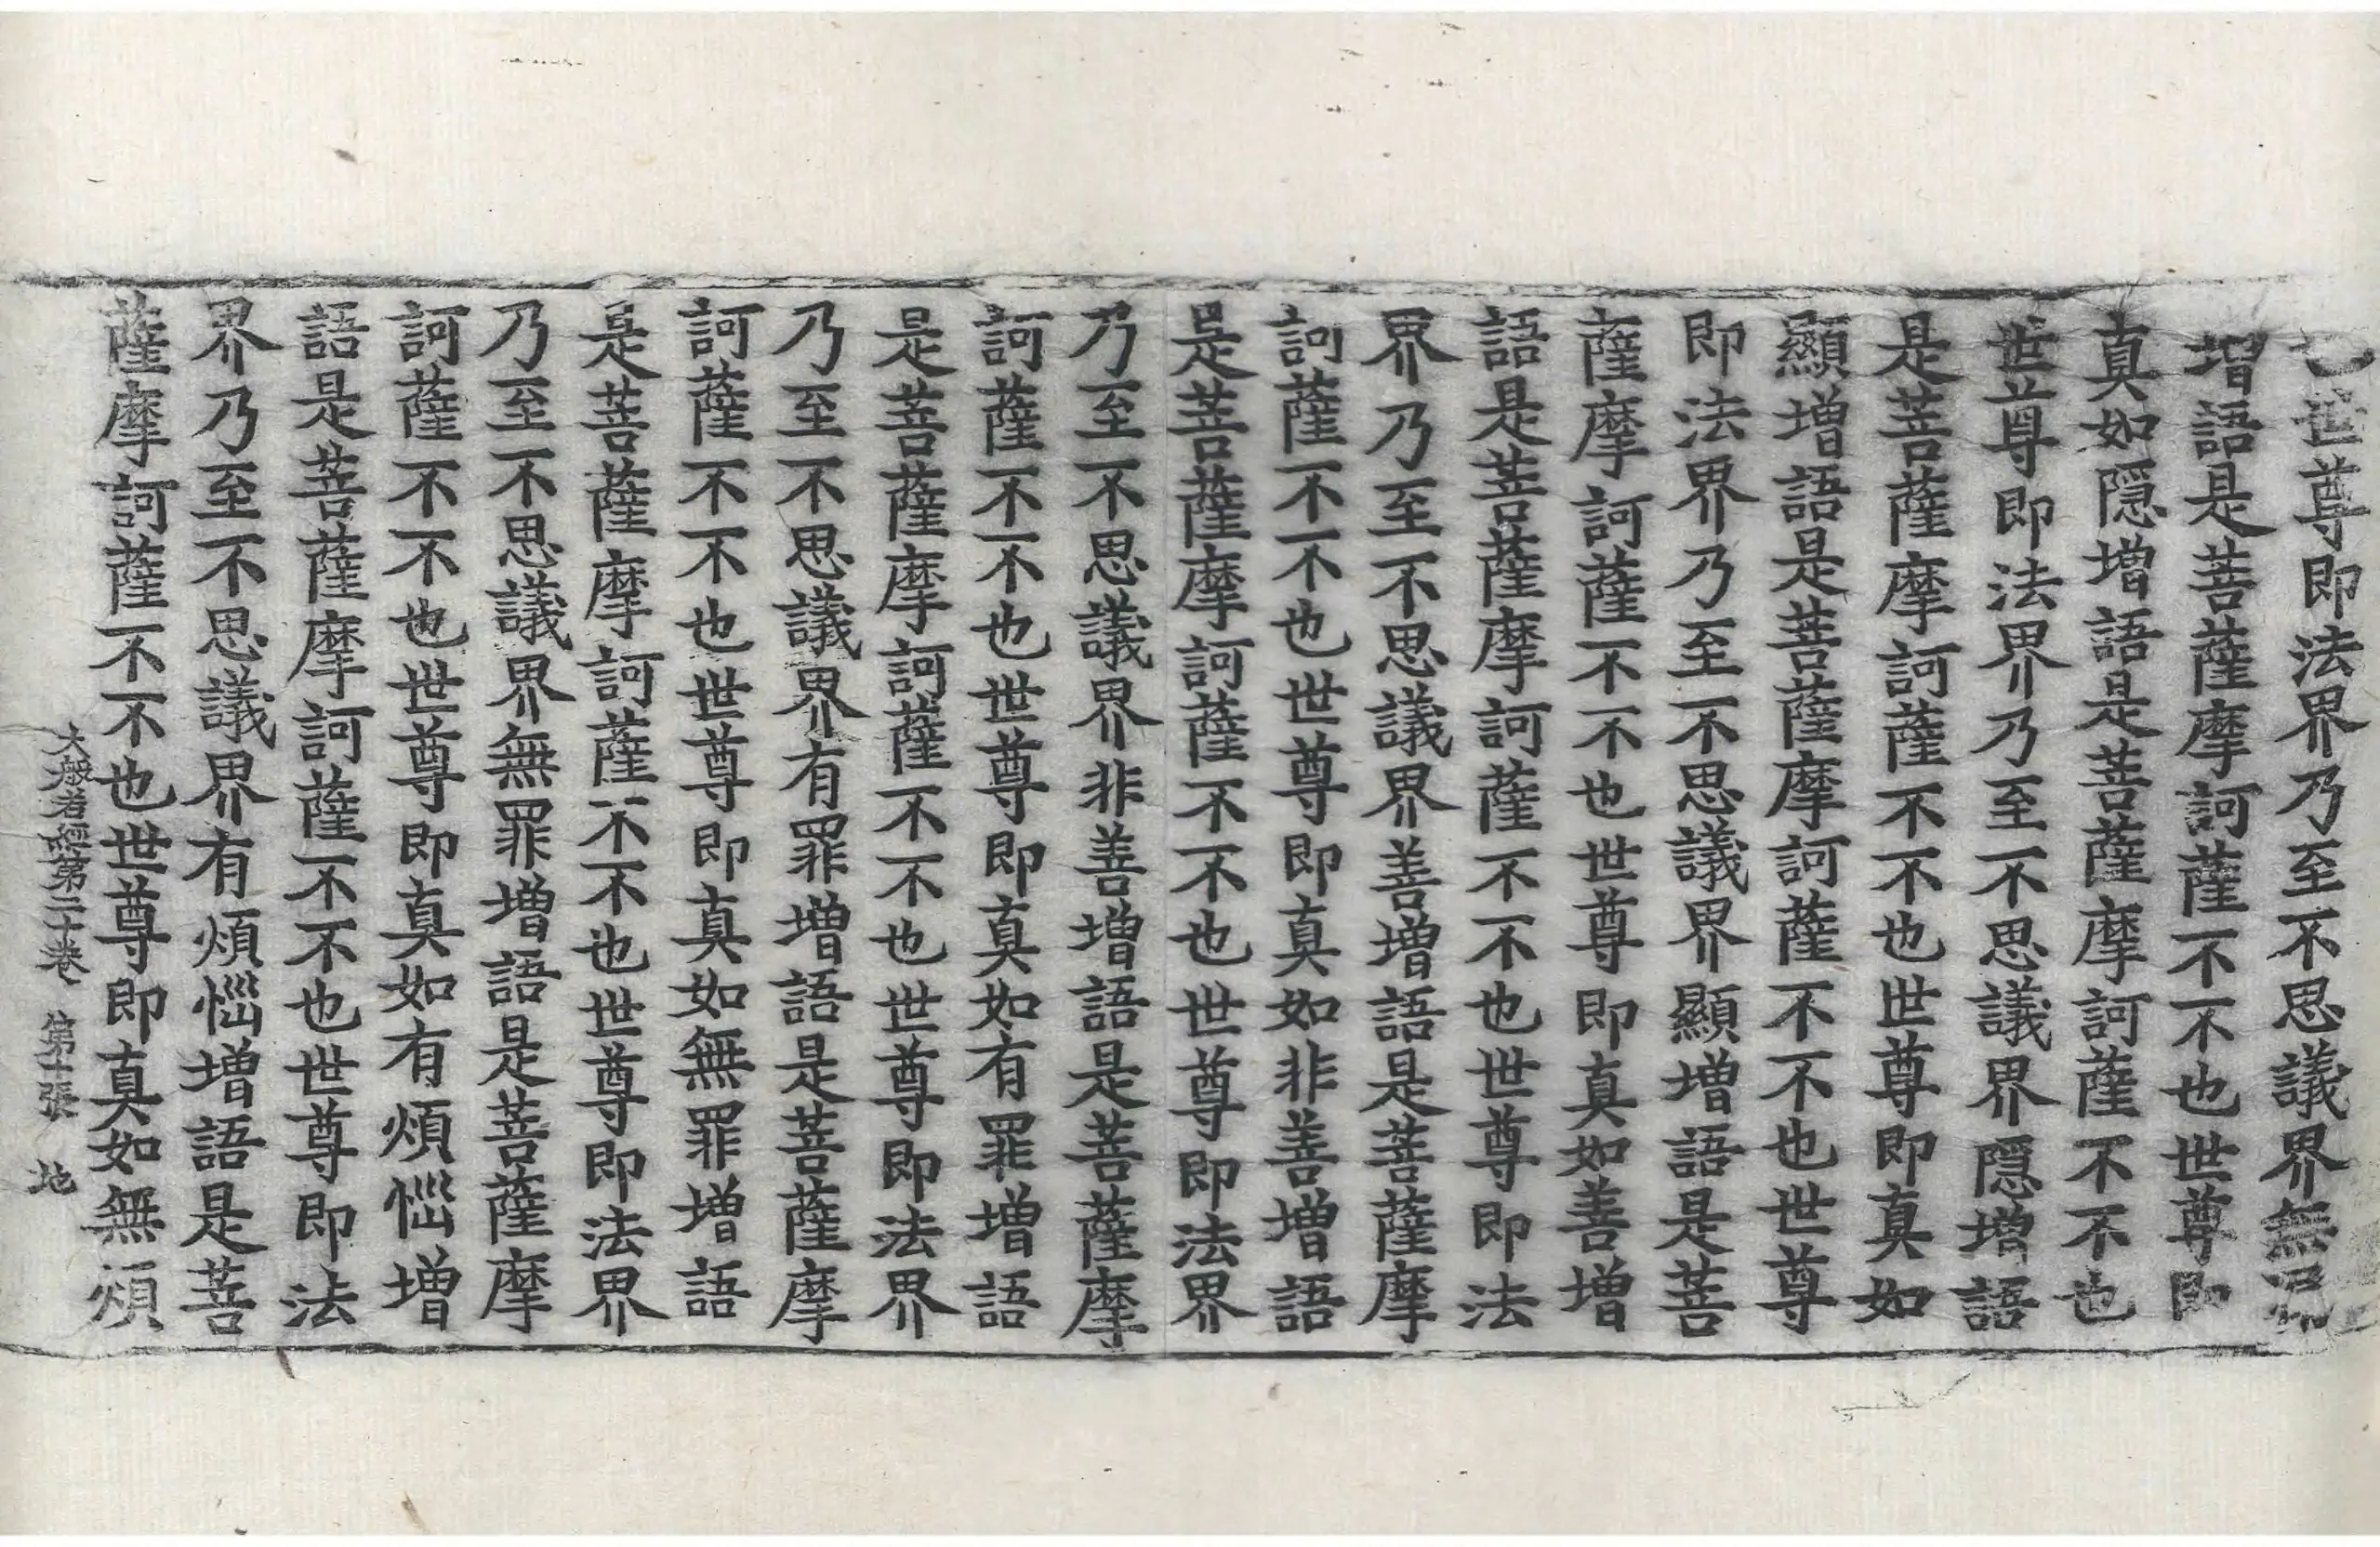 世尊即法界乃至不思議界無
增語是菩薩摩訶薩不不也世尊即
真如隱增語是菩薩摩訶薩不不也
世尊即法界乃至不思議界隱增語
是菩薩摩訶薩不不也世尊即真如
顯增語是菩薩摩訶薩不不也世尊
即法界乃至不思議界顯增語是菩
薩摩訶薩不不也世尊即真如善增
語是菩薩摩訶薩不不也世尊即法
界乃至不思議界善增語是菩薩摩
訶薩不不也世尊即真如非善增語
是菩薩摩訶薩不不也世尊即法界
乃至不思議界非善增語是菩薩摩
訶薩不不也世尊即真如有罪增語
是菩薩摩訶薩不不也世尊即法界
乃至不思議界有罪增語是菩薩摩
訶薩不不也世尊即真如無罪增語
是菩薩摩訶薩不不也世尊即法界
乃至不思議界無罪增語是菩薩摩
訶薩不不也世尊即真如有煩惱增
語是菩薩摩訶薩不不也世尊即法
界乃至不思議界有煩惱增語是菩
薩摩訶薩不不也世尊即真如無煩
大般若經第二十卷 第十張 地